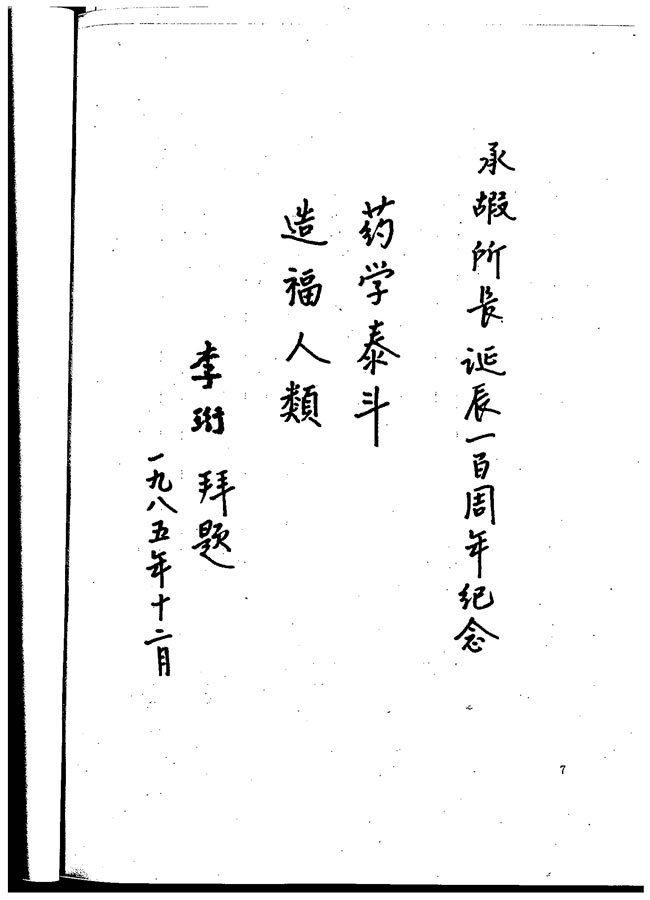 承嘏所長诞辰一百周年纪念
药学泰斗
造福人類
李珩 拜题
一九八五年十二月
7